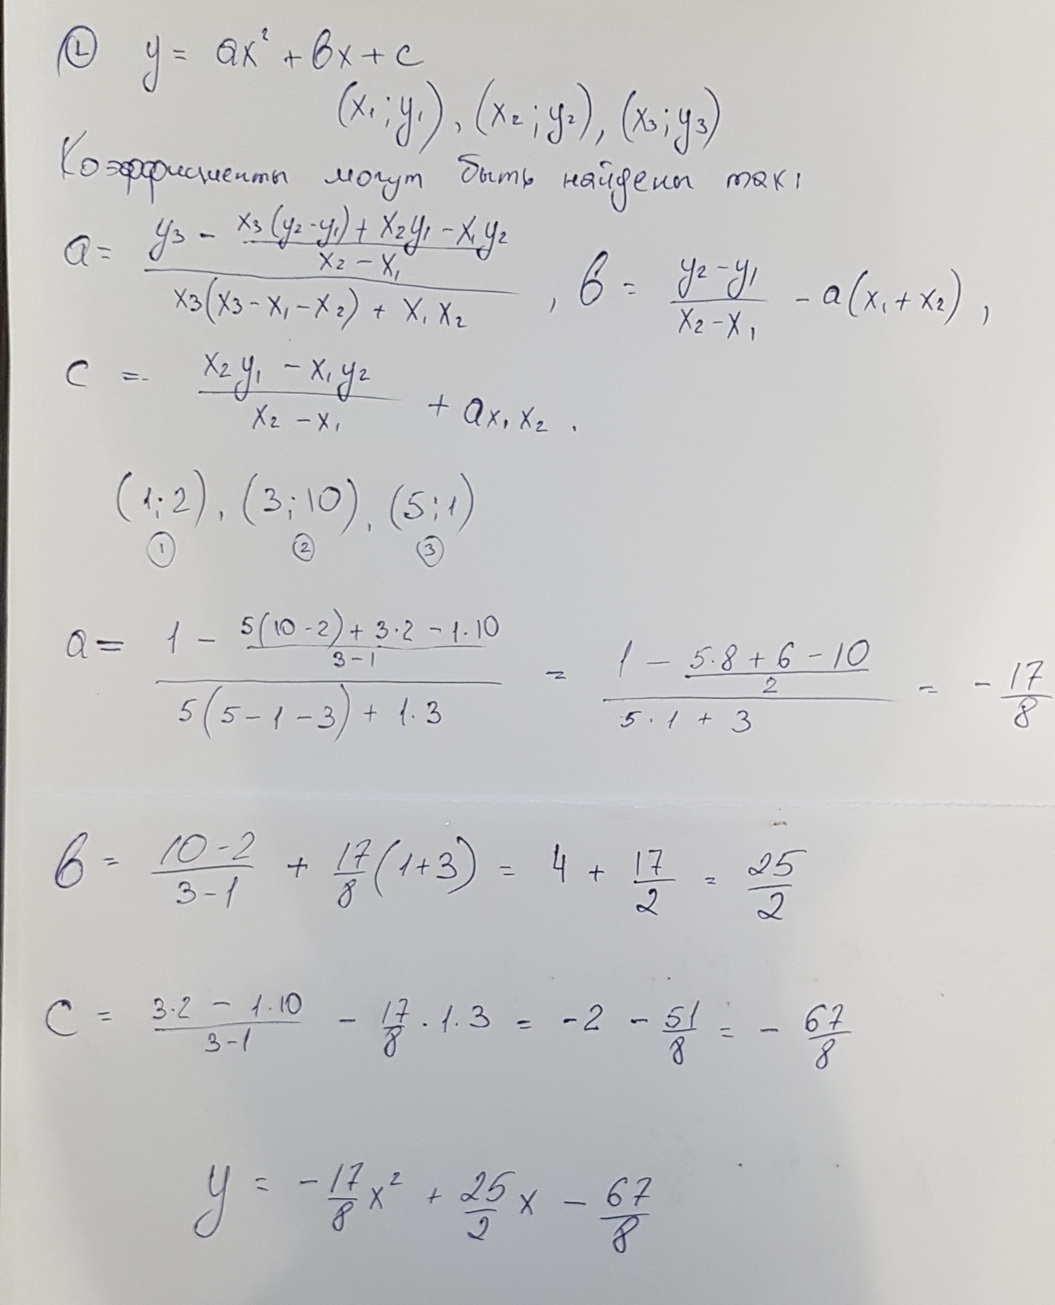 ① y = ax² + bx + c
(x₁;y₁), (x₂;y₂), (x₃;y₃)
Коэффициенты могут быть найдены так:
a = (y₃ - (x₃(y₂-y₁) + x₂y₁ - x₁y₂)/(x₂ - x₁))/(x₃(x₃ - x₁ - x₂) + x₁x₂), b = (y₂-y₁)/(x₂-x₁) - a(x₁ + x₂),
c = (x₂y₁ - x₁y₂)/(x₂ - x₁) + ax₁x₂.
(1;2), (3;10), (5;1)
① ② ③
a = (1 - (5(10-2) + 3·2 - 1·10)/(3-1))/(5(5-1-3) + 1·3) = (1 - (5·8 + 6 - 10)/2)/(5·1 + 3) = -17/8
b = (10-2)/(3-1) + 17/8(1+3) = 4 + 17/2 = 25/2
c = (3·2 - 1·10)/(3-1) - 17/8·1·3 = -2 - 51/8 = -67/8
y = -17/8x² + 25/2x - 67/8